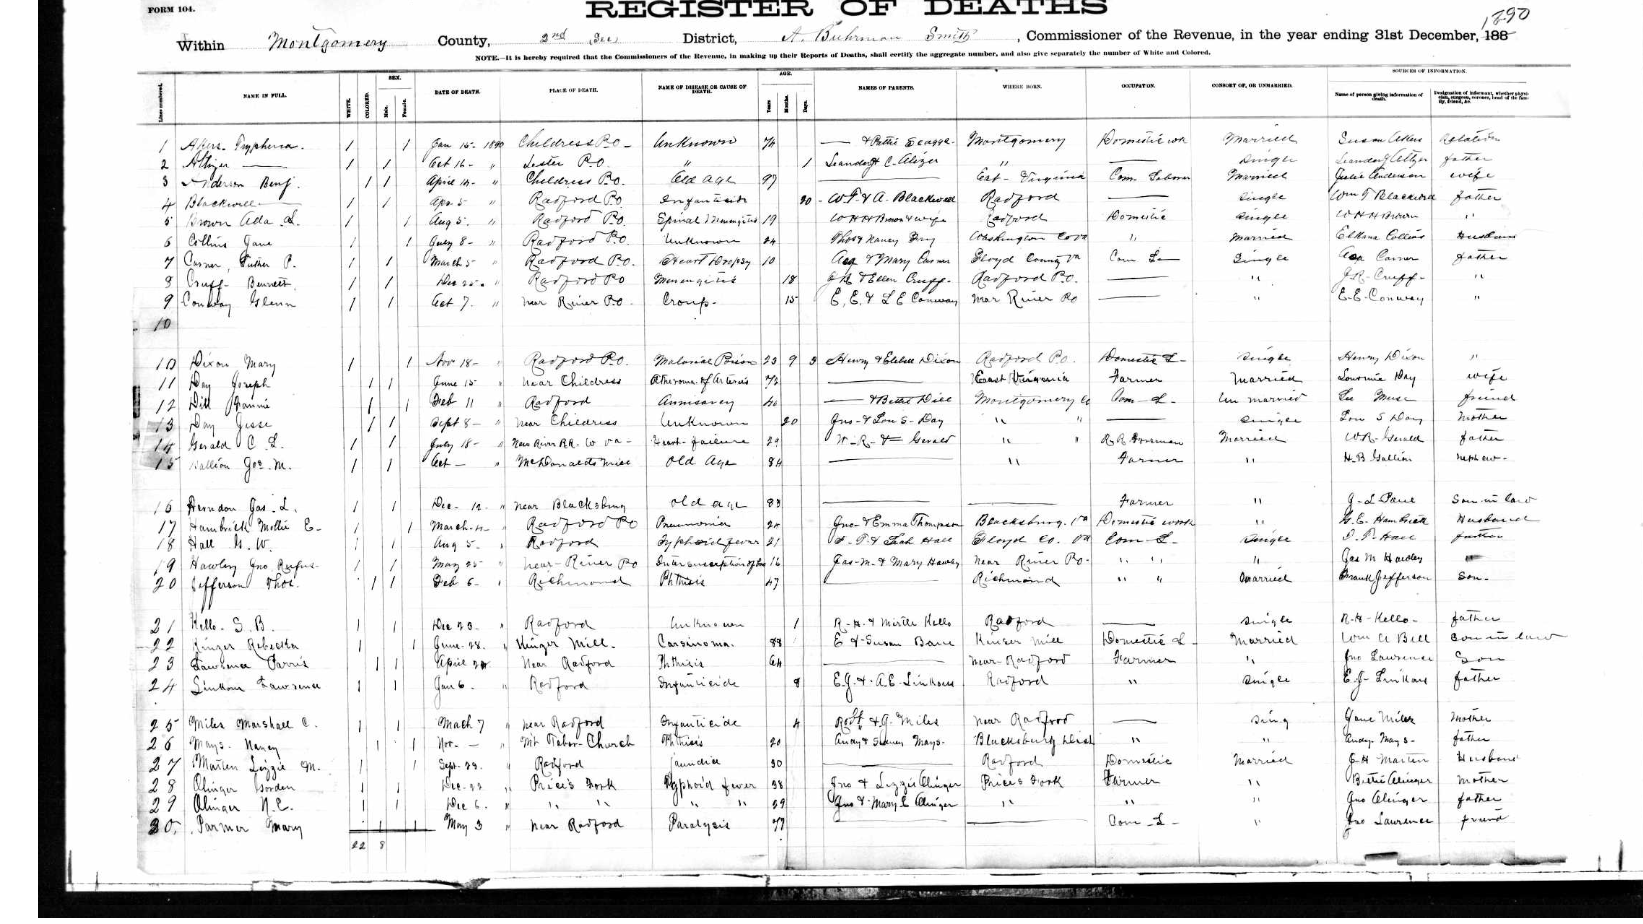 FORM 104.
REGISTER OF DEATHS
1890
Within Montgomery County, 2nd District, A. Buhrman Smith, Commissioner of the Revenue, in the year ending 31st December, 188
NOTE.—It is hereby required that the Commissioners of the Revenue, in making up their Reports of Deaths, shall certify the aggregate number, and also give separately the number of White and Colored.
SEX. AGE. SOURCES OF INFORMATION.
Lines numbered. NAME IN FULL. WHITE. COLORED. Male. Female. DATE OF DEATH. PLACE OF DEATH. NAME OF DISEASE OR CAUSE OF DEATH. Years Months Days. NAMES OF PARENTS. WHERE BORN. OCCUPATON. CONSORT OF, OR UNMARRIED. Name of person giving information of death. Designation of informant, whether physician, surgeon, coroner, head of the family, friend, &c.
1 Akers 1 1 Jan 15- 1890 Childress P.O Unknown 74 Montgomery Domestic Married Susan Akers relation
2 1 1 Oct 16- " Lester P.O. " 1 Leander & C. " Single father
3 Anderson Benj. 1 1 April 14- " Childress P.O. Old age 97 East Virginia Com Laborer Married Anderson wife
4 Blackwell 1 1 Apr 5 " Radford P.O. Infanticide 20 W.T. & A. Blackwell Radford Single Wm T Blackwell father
5 Brown Ada L. 1 1 Aug 5. " Radford P.O. Spinal Meningitis 19 W H H Brown & wife Radford Domestic Single W H H Brown "
6 Collins Jane 1 1 July 8- " Radford P.O Unknown 24 Thos & Nancy Washington Co Va " Married Elkana Collins Husband
7 Carner, Luther P. 1 1 March 5 " Radford P.O. Heart Dropsy 10 Asa & Mary Carner Floyd County Va Com La Single Asa Carner father
8 Cruff- Bennett 1 1 Dec 25- " Radford P.O Meningitis 18 J.R. & Ellen Cruff- Radford P.O. " J.R- Cruff- "
9 Conway Glenn 1 1 Oct 7. " near River P.O Croup- 15 E. E. & L E Conway near River Po " E-E- Conway "
10
10 Dixon Mary 1 1 Nov 18- " Radford P.O. Malarial Poison 23 9 3 Henry & Dixon Radford Po. Domestic L- Single Henry Dixon "
11 Day Joseph 1 1 June 15 " near Childress Atheroma of Arteries 73 East Virginia Farmer Married Day wife
12 Dill Fannie 1 1 Feb 11 " Radford 40 & Dill Montgomery Co Com- L- Un married friend
13 Day Jesse 1 1 Sept 8- " near Childress Unknown 20 Jno- & Lou S- Day " " Single Lou S Day Mother
14 Gerald C. L. 1 1 July 18- " New River R.R. W Va- Heart- failure 29 W-R- & Gerald " " R R Foreman Married W R- Gerald father
15 Gallion Jos. M. 1 1 Oct- " McDonalds Mill old Age 84 " Farmer " H. B. Gallion nephew-
16 Herndon Jas. L. 1 1 Dec- 12. " near Blacksburg old age 83 Farmer " J-L Son in law
17 Hambrick Mollie E- 1 1 March-4- " Radford Po Pneumonia 24 Jno- & Emma Thompson Blacksburg. Va Domestic work " G.E. Hambrick Husband
18 Hall G. W. 1 1 Aug 5- " Radford Typhoid fever 21 & Leah Hall Floyd Co. Va Com- L- Single Hall father
19 Hawley Jno Rufus- 1 1 May 25- " near- River Po 16 Jas-M- & Mary Hawley near River Po- " " " Jas M Hawley "
20 Jefferson Thos. 1 1 Feb 6- " Richmond Phthisis 47 Richmond " " Married Frank Jefferson son-
21 Kello- S. B. 1 1 Dec 23- " Radford Unknown 1 R-H- & Mirtle Kello Radford Single R-H- Kello- father
22 Kinzer Rebecca 1 1 June- 28. " Kinzer Mill. Carsinoma. 88 E & Susan Kinzer Mill Domestic L- Married Wm A Bell Son in law
23 Lawrence 1 1 April 24 " Near Radford Phthisis 64 near- Radford Farmer " Jno Lawrence Son
24 Linkous Lawrence 1 1 Jan 6. " Radford Infanticide 8 E.J. & A E- Linkous Radford " Single E-J- Linkous father
25 Miles Marshall C. 1 1 Mach 7 " near Radford Infanticide 4 Robt. & J. Miles near Radford Sing Jane Miles Mother
26 Mays- Nancy 1 1 Nov. - " Mt Tabor- Church Phthisis 20 Andy & Mays- Blacksburg Dist " " Andy- Mays- father
27 Marten Lizzie M. 1 1 Sept. 23. " Radford Jaundice 30 Radford Domestic Married J H Marten Husband
28 Olinger Gordon 1 1 Dec- 23 " Price's Fork Typhoid fever 38 Jno & Lizzie Olinger Price's Fork Farmer " Olinger Mother
29 Olinger N.E. 1 1 Dec 6. " " " " " 39 Jno & Mary E Olinger " " " Jno Olinger father
30. Parmer Mary 1 1 May 3 " near Radford Paralysis 77 Com- L- " Jno Lawrence friend
22 8